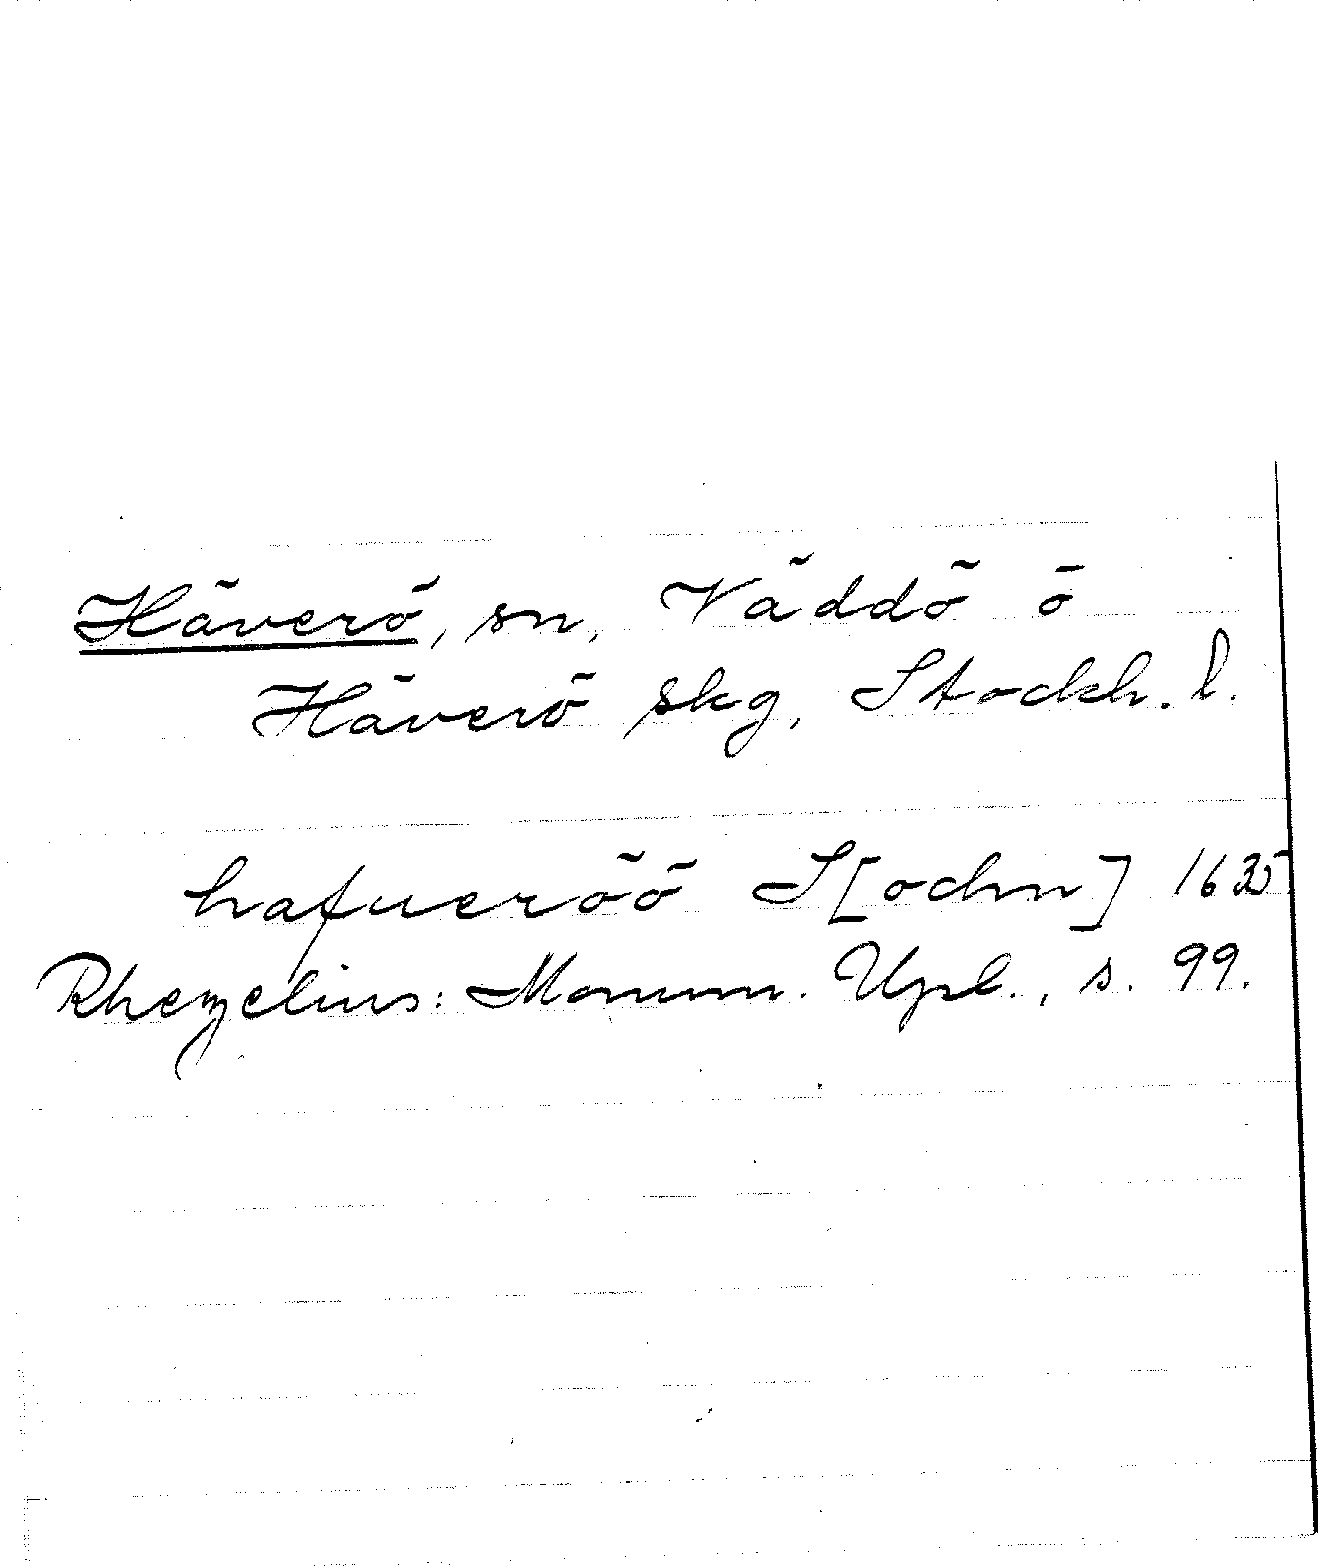 Häverö, sn, Väddö o
Häverö skg, Stockh. l.
hafueröö S[ochn] 1635
Rhezelius: Monum. Upl., s. 99.